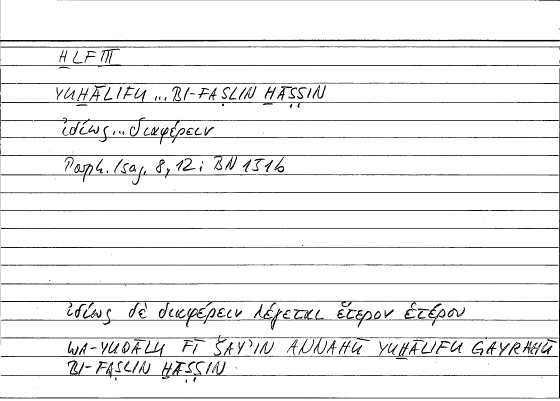 ḪLF III
YUḪĀLIFU ... BI-FAṢLIN ḪĀṢṢIN
ἰδίως ... διαφέρειν
Porph. Isag. 8, 12 : BN 151b
ἰδίως δὲ διαφέρειν λέγεται ἕτερον ἑτέρου
WA-YUQĀLU FĪ ŠAY'IN ANNAHŪ YUḪĀLIFU ĠAYRAHŪ
BI-FAṢLIN ḪĀṢṢIN